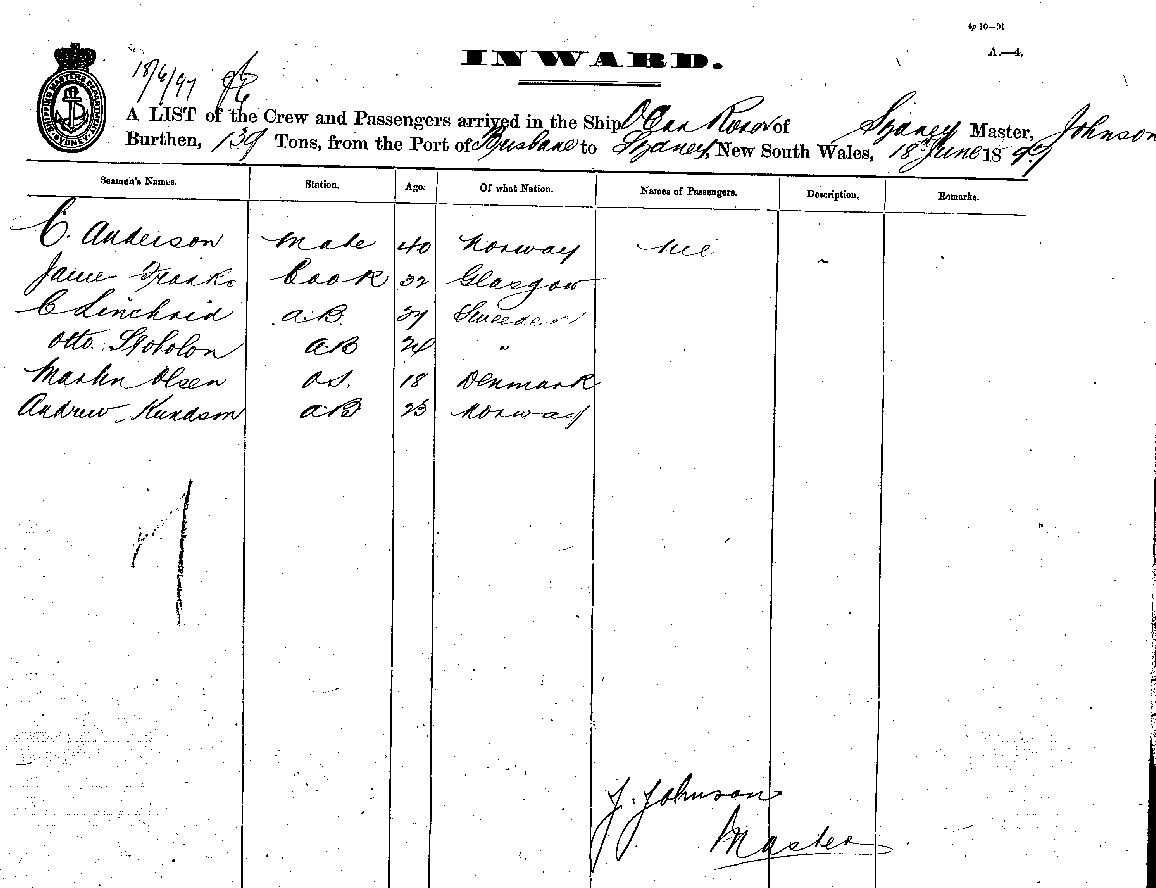 4p 10—91
A.—4.
INWARD.
18/6/97
SHIPPING MASTER'S DEPARTMENT SYDNEY
A LIST of the Crew and Passengers arrived in the Ship of Sydney Master, Johnson
Burthen, 139 Tons, from the Port of Brisbane to Sydney, New South Wales, 18th June 1897
Seamen's Names. Station. Age. Of what Nation. Names of Passengers. Description. Remarks.
C. Anderson Mate 40 Norway Nil
Cook 32 Glasgow
C A.B. Sweeden
Otto AB 24 "
Martin Olsen O.S. 18 Denmark
Andrew Kundson AB 23 Norway
J. Johnson
Master